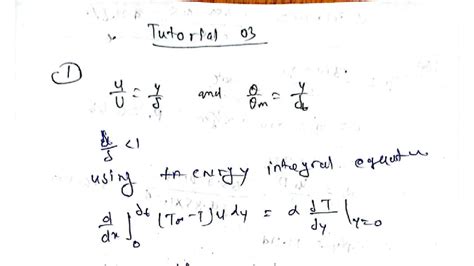 Tutorial 03
①
u/U = y/δ and θ/θm = y/δt
δt/δ < 1
using energy integral equation
d/dx ∫₀^δt (T∞ - T) u dy = α dT/dy |y=0